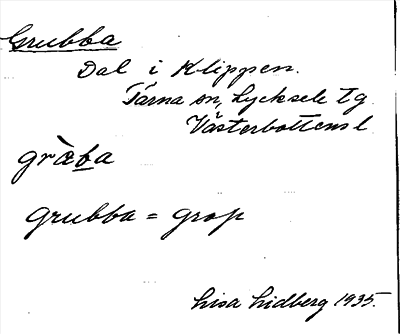 Grubba
Dal i Klippen.
Tärna sn, Lycksele tg
Västerbottens l
gràba
grubba = grop
Lisa Lidberg 1935.